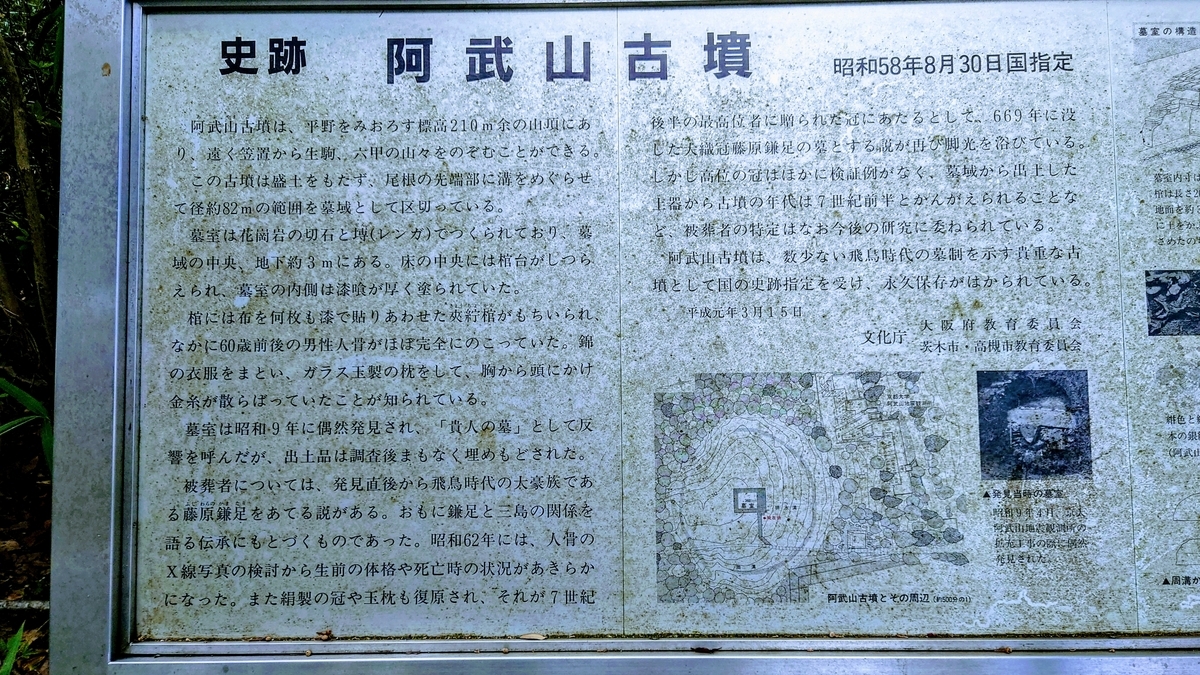 史跡 阿武山古墳 昭和58年8月30日国指定
阿武山古墳は、平野をみおろす標高210m余の山頂にあ
り、遠く笠置から生駒、六甲の山々をのぞむことができる。
この古墳は盛土をもたず、尾根の先端部に溝をめぐらせ
て径約82mの範囲を墓域として区切っている。
墓室は花崗岩の切石と塼(レンガ)でつくられており、墓
域の中央、地下約3mにある。床の中央には棺台がしつら
えられ、墓室の内側は漆喰が厚く塗られていた。
棺には布を何枚も漆で貼りあわせた夾紵棺がもちいられ、
なかに60歳前後の男性人骨がほぼ完全にのこっていた。錦
の衣服をまとい、ガラス玉製の枕をして、胸から頭にかけ
金糸が散らばっていたことが知られている。
墓室は昭和9年に偶然発見され、「貴人の墓」として反
響を呼んだが、出土品は調査後まもなく埋めもどされた。
被葬者については、発見直後から飛鳥時代の大豪族であ
る藤原鎌足をあてる説がある。おもに鎌足と三島の関係を
語る伝承にもとづくものであった。昭和62年には、人骨の
X線写真の検討から生前の体格や死亡時の状況があきらか
になった。また絹製の冠や玉枕も復原され、それが7世紀
後半の最高位者に贈られた冠にあたるとして、669年に没
した大織冠藤原鎌足の墓とする説が再び脚光を浴びている。
しかし高位の冠はほかに検証例がなく、墓域から出土した
土器から古墳の年代は7世紀前半とかんがえられることな
ど、被葬者の特定はなお今後の研究に委ねられている。
阿武山古墳は、数少ない飛鳥時代の墓制を示す貴重な古
墳として国の史跡指定を受け、永久保存がはかられている。
平成元年3月15日
文化庁
大阪府教育委員会
茨木市・高槻市教育委員会
京都大学
墓室
▲発見当時の墓室
昭和9年4月、京大
阿武山地震観測所の
拡充工事の際に偶然
発見された。
阿武山古墳とその周辺(約500分の1)
墓室の構造
墓室内寸は
棺は長さ
地面を約
さめたの
紺色と
本の銀
(阿武山
▲周溝か